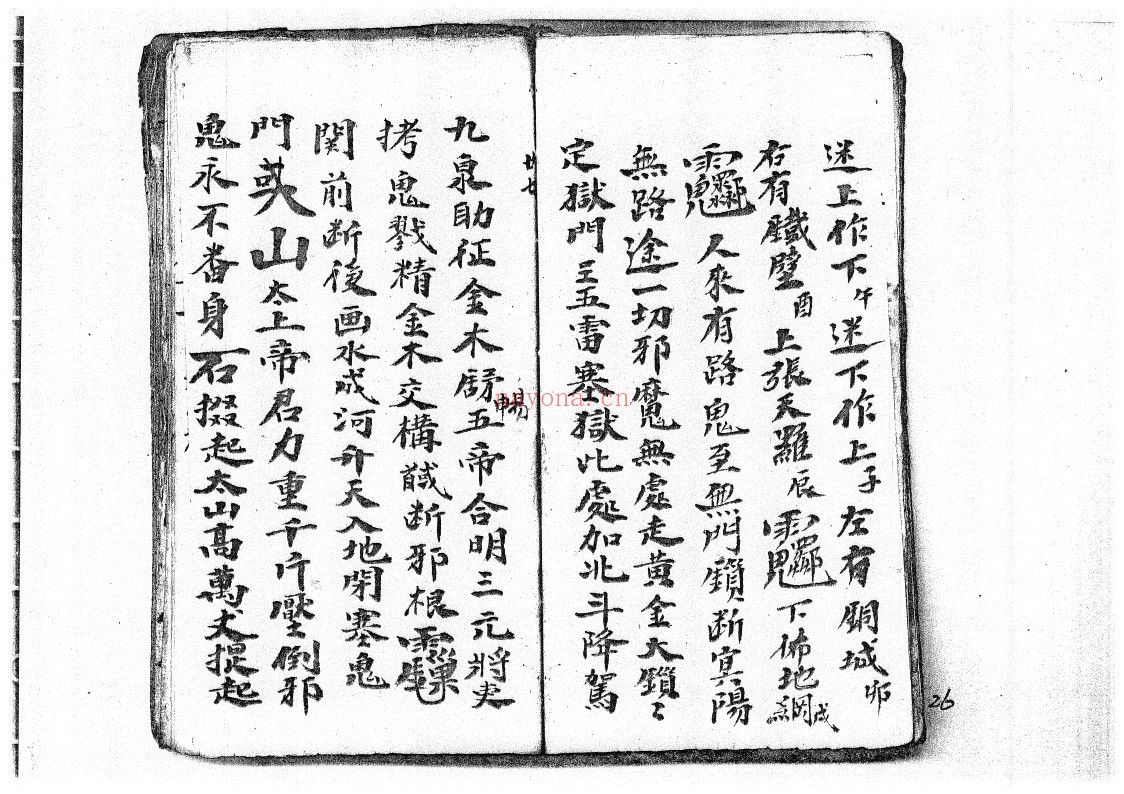 迷上作下午迷下作上子左有銅城卯
右有鐵壁酉上張天羅辰下佈地網戌
人來有路鬼至無門鎖斷冥陽
無路途一切邪魔無處走黄金大鎖〻
定獄門五雷塞獄此處加北斗降駕
九泉助征金木舒暢五帝合明三元將吏
拷鬼戮精金木交構馘断邪根
関前断後画水成河升天入地閉塞鬼
門 山太上帝君力重千斤壓倒邪
鬼永不畨身石掇起太山高萬丈提起
26